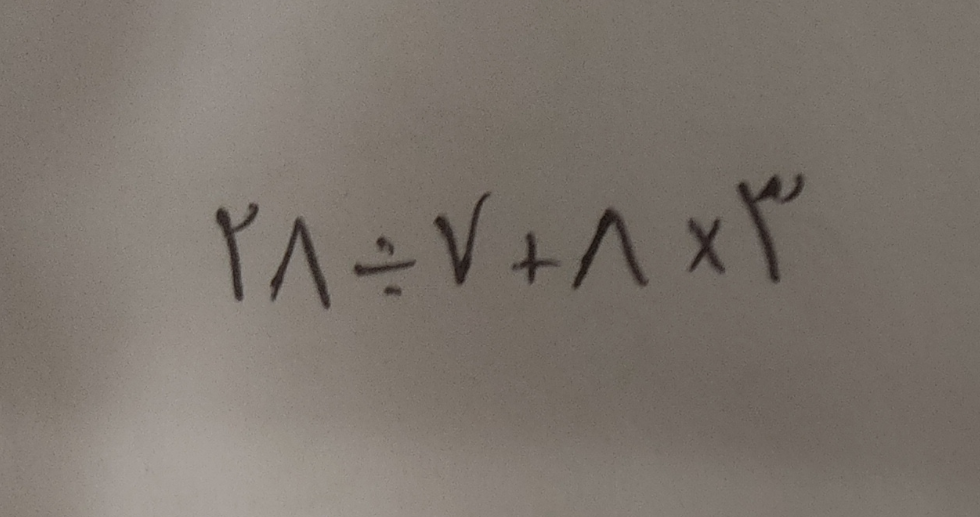 ۲۸ ÷ ۷ + ۸ × ۳